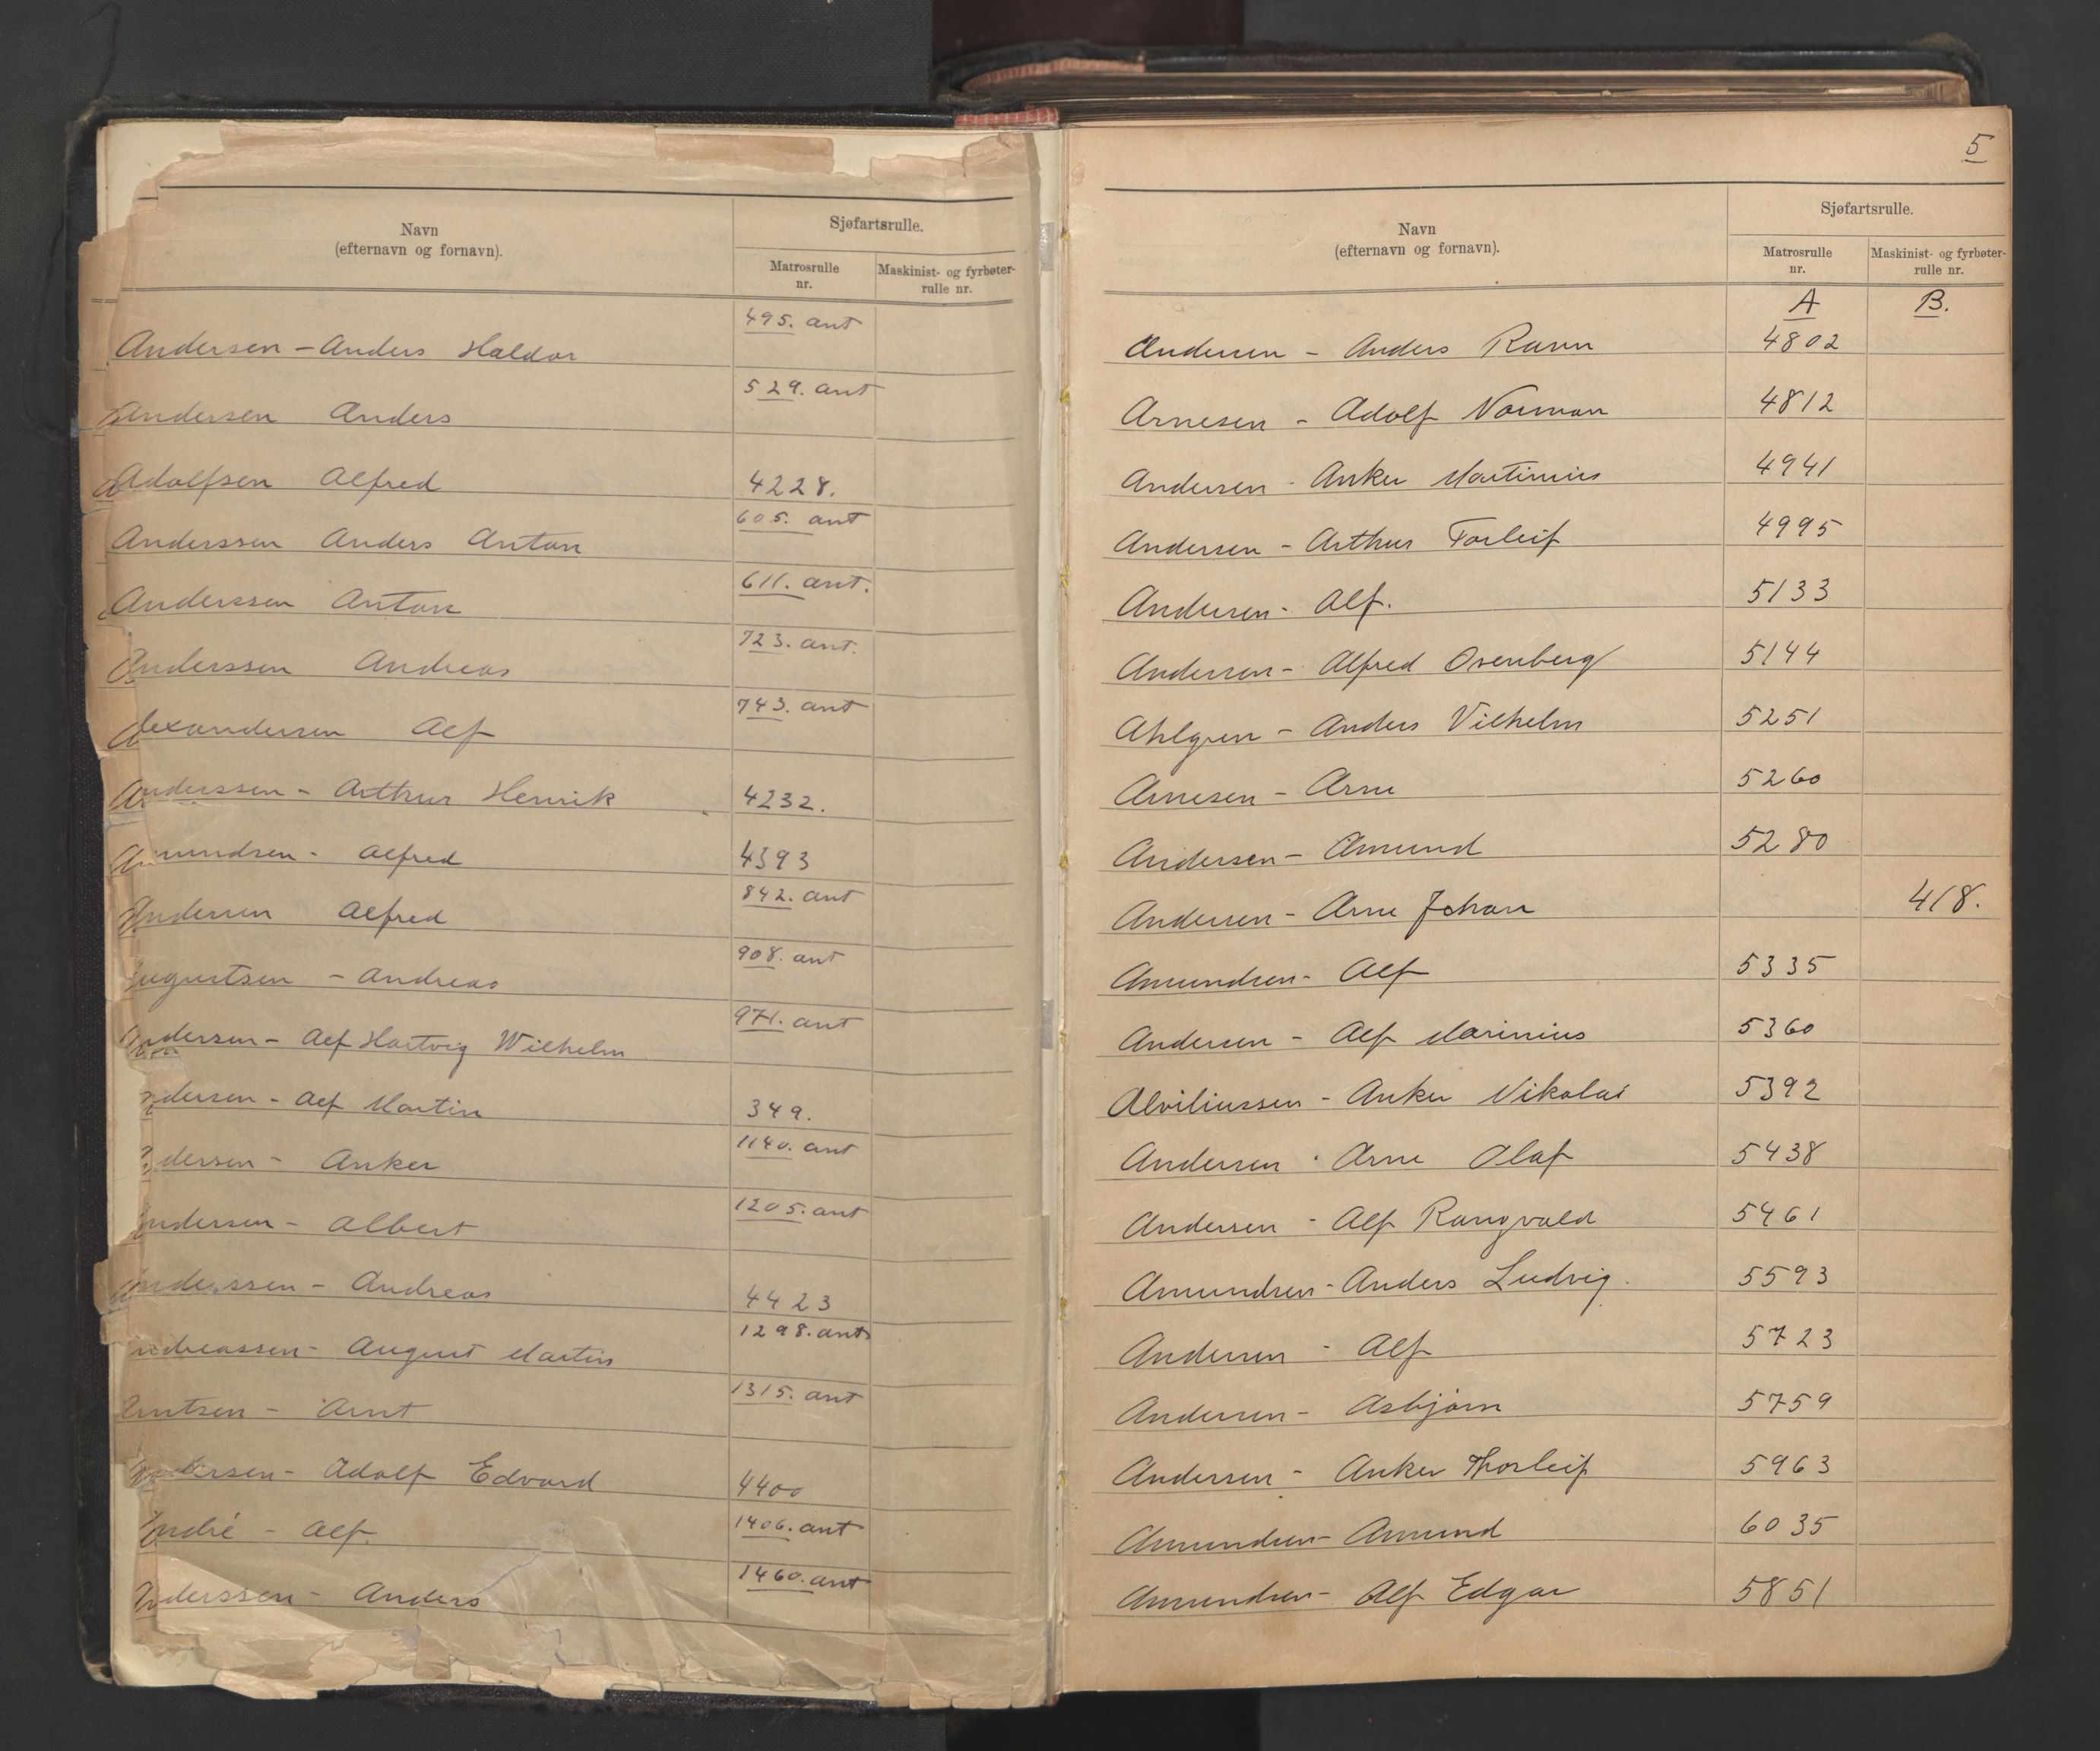 Navn
(efternavn og fornavn).
Sjøfartsrulle.
Matrosrulle
nr.
Maskinist- og fyrbøter-
rulle nr.
Andersen - Anders Haldor 495. ant
Andersen Anders 529. ant
Adolfsen Alfred 4228.
Anderssen Anders Anton 605. ant
Anderssen Anton 611. ant.
Anderssen Andreas 723. ant.
Alexandersen Alf 743. ant
Anderssen - Arthur Henrik 4232.
Amundsen - Alfred 4393
Andersen Alfred 842. ant
Augustsen - Andreas 908. ant
Andersen - Alf Hartvig Wilhelm 971. ant
Andersen - Alf Martin 349.
Andersen - Anker 1140. ant
Andersen - Albert 1205. ant
Anderssen - Andreas 4423
Andreassen - August Martin 1298. ant
Arntsen - Arnt 1315. ant
Andersen - Adolf Edvard 4400
André - Alf. 1406. ant
Anderssen - Anders 1460. ant
5
Navn
(efternavn og fornavn).
Sjøfartsrulle.
Matrosrulle
nr.
Maskinist- og fyrbøter-
rulle nr.
A B.
Andersen - Anders Ravn 4802
Arnesen - Adolf Norman 4812
Andersen - Anker Martinius 4941
Andersen - Arthur Torleif 4995
Andersen - Alf. 5133
Andersen - Alfred Osenberg 5144
Ahlgren - Anders Vilhelm 5251
Arnesen - Arne 5260
Andersen - Amund 5280
Andersen - Arne Johan 418.
Amundsen - Alf 5335
Andersen - Alf Marinius 5360
Alviliussen - Anker Nikolai 5392
Andersen - Arne Olaf 5438
Andersen - Alf Rangvald 5461
Amundsen - Anders Ludvig. 5593
Andersen - Alf 5723
Andersen - Asbjørn 5759
Andersen - Anker Thorleif 5963
Amundsen - Amund 6035
Amundsen - Alf Edgar 5851